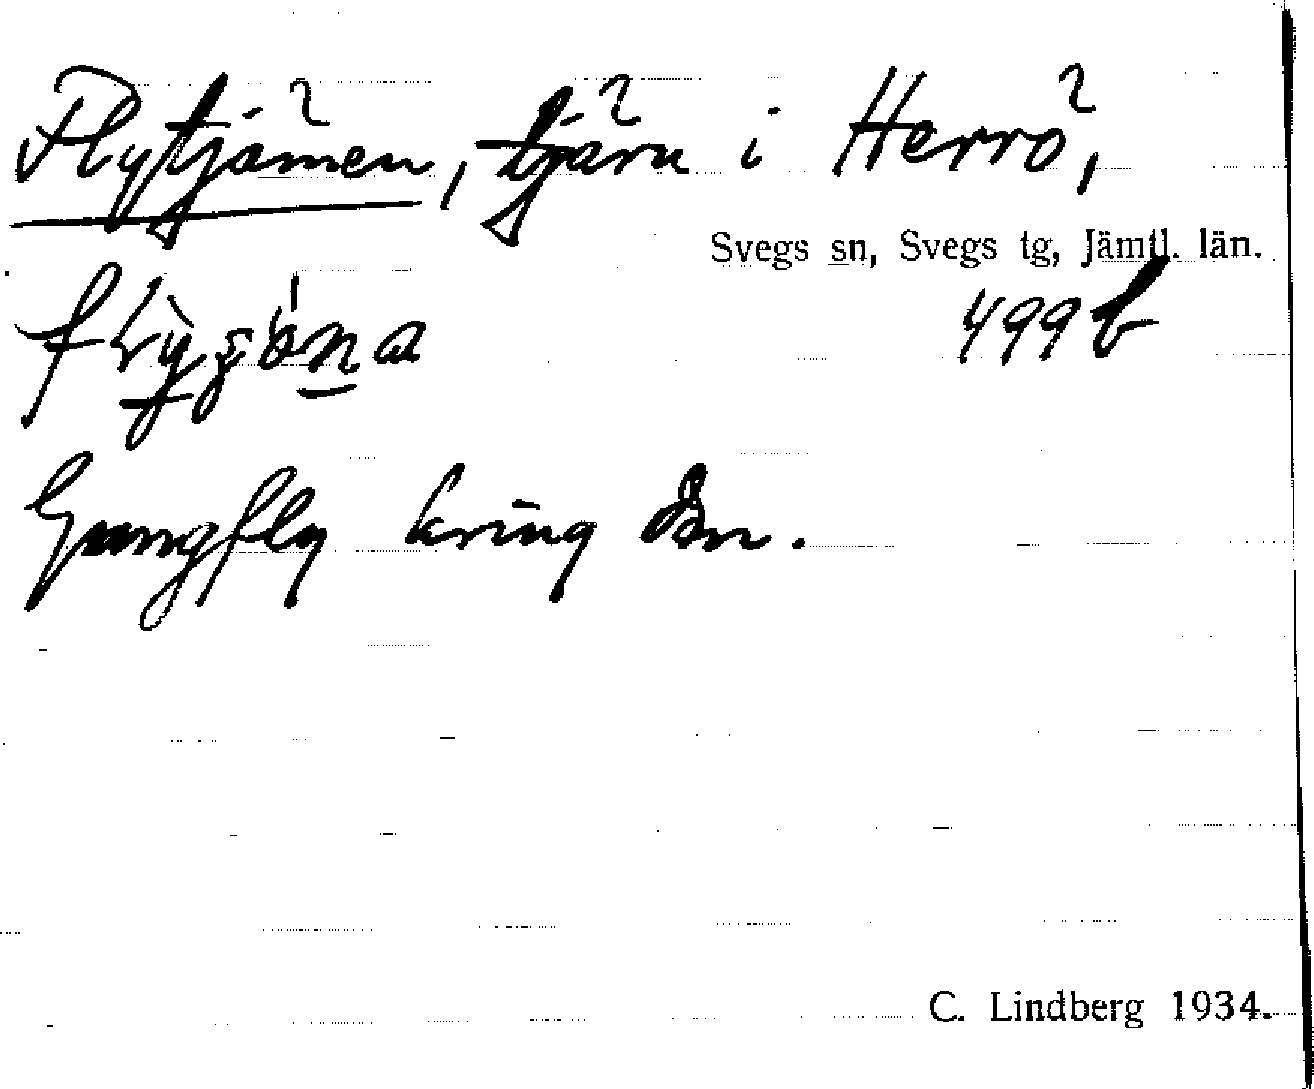 Flytjärnen, tjärn i Herrö,
Svegs sn, Svegs tg, Jämtl. län.
499 b
Gungfly kring den.
C. Lindberg 1934.